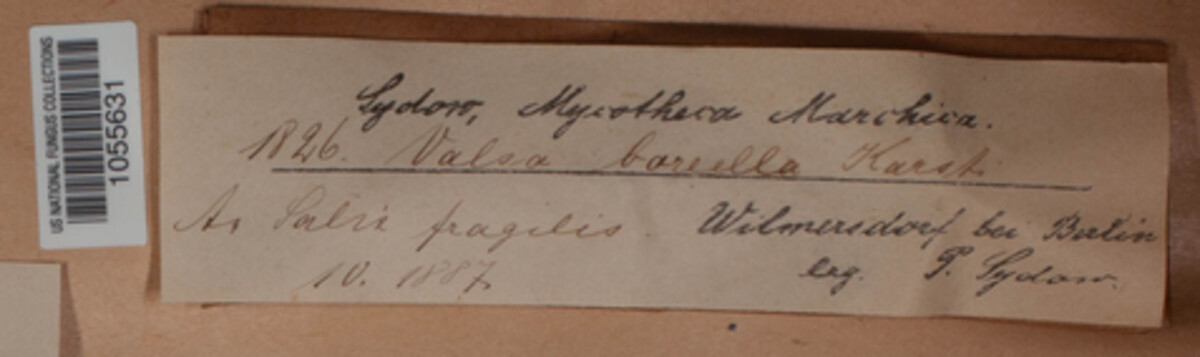 US NATIONAL FUNGUS COLLECTIONS
1055631
Sydow, Mycotheca Marchica.
1826. Valsa boreella Karst.
An Salix fragilis
Wilmersdorf bei Berlin
10. 1887
leg. P. Sydow.